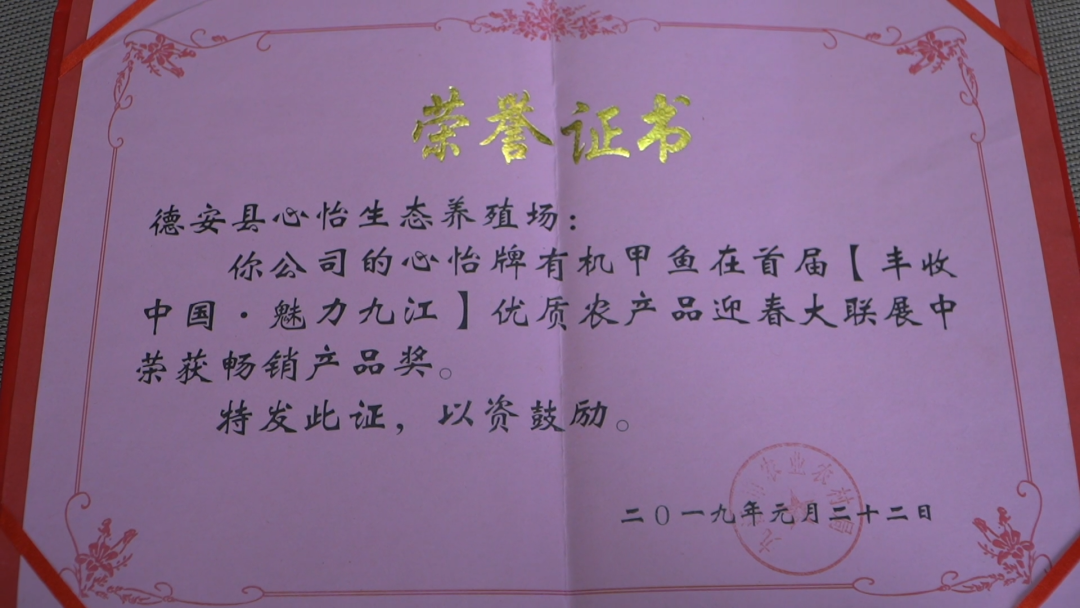 荣誉证书
德安县心怡生态养殖场：
你公司的心怡牌有机甲鱼在首届【丰收
中国·魅力九江】优质农产品迎春大联展中
荣获畅销产品奖。
特发此证，以资鼓励。
九江市农业农村局
二〇一九年元月二十二日